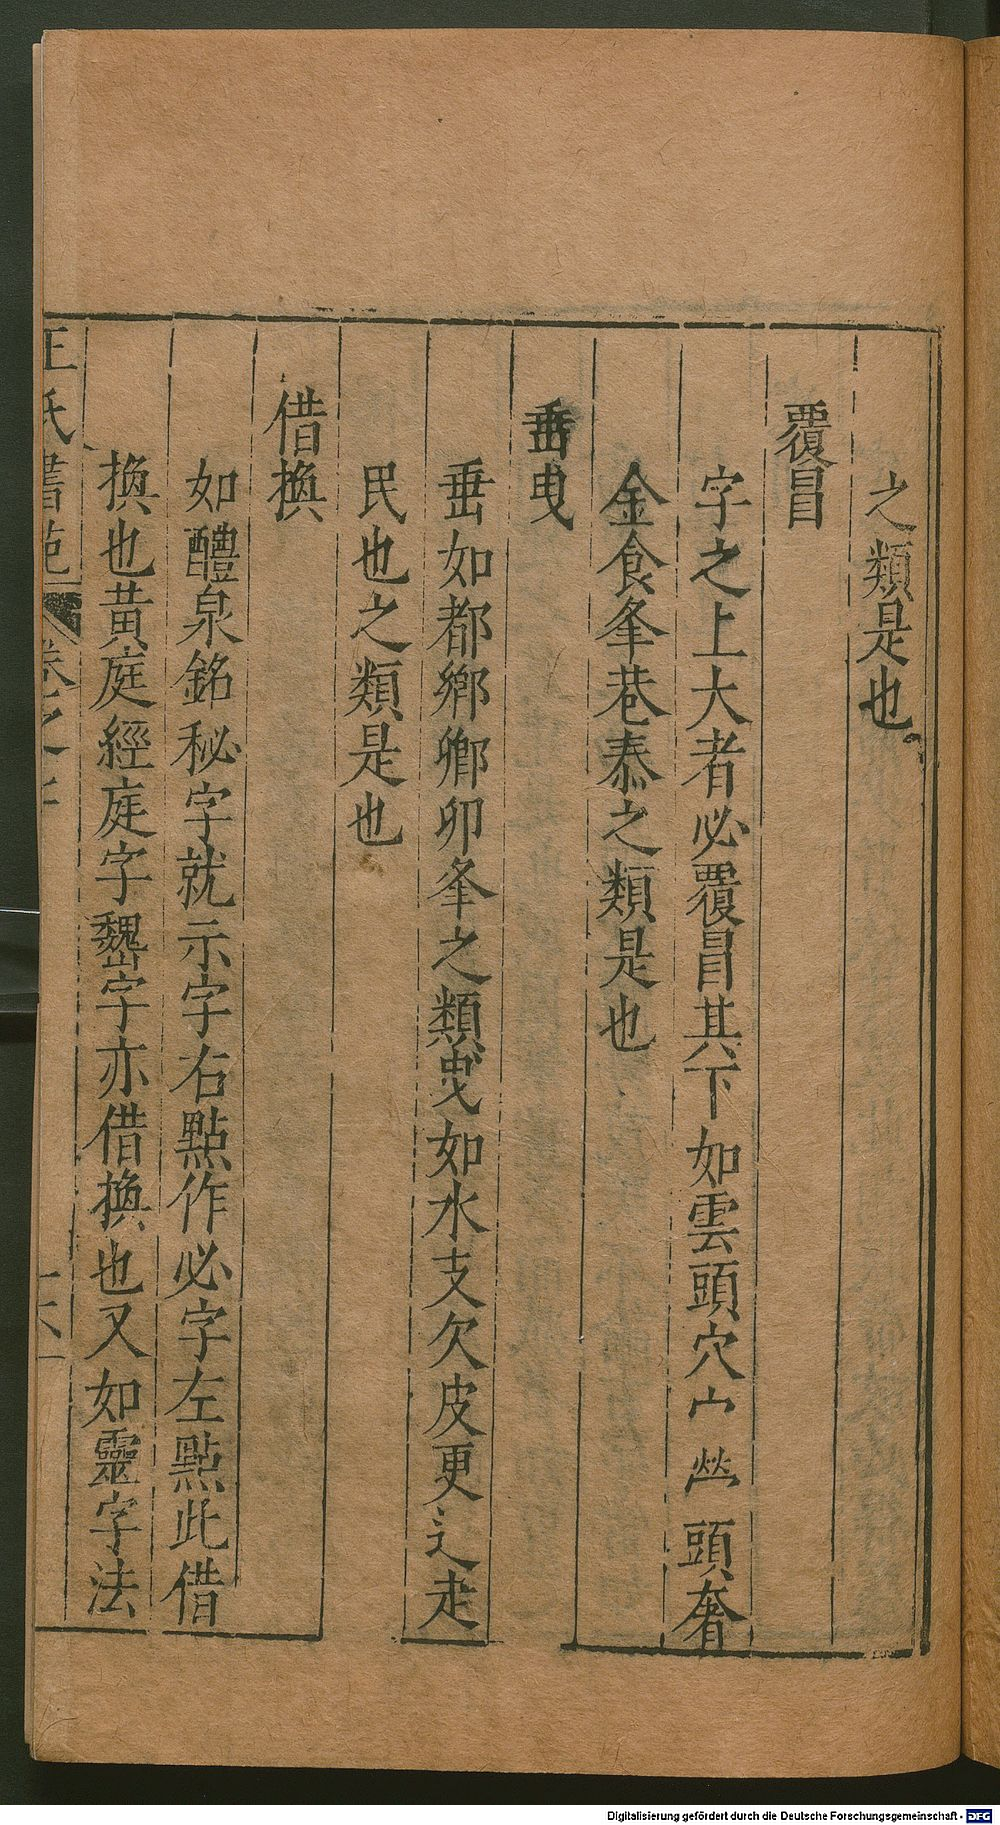 之類是也
覆冒
字之上大者必覆冒其下如雲頭穴宀 頭奢
金食夆巷泰之類是也
垂曳
垂如都鄉卿卯夆之類曳如水支欠皮更辶走
民也之類是也
借換
如醴泉銘秘字就示字右點作必字左點此借
換也黃庭經庭字字亦借換也又如靈字法
王氏書苑 卷之
Digitalisierung gefördert durch die Deutsche Forschungsgemeinschaft - DFG